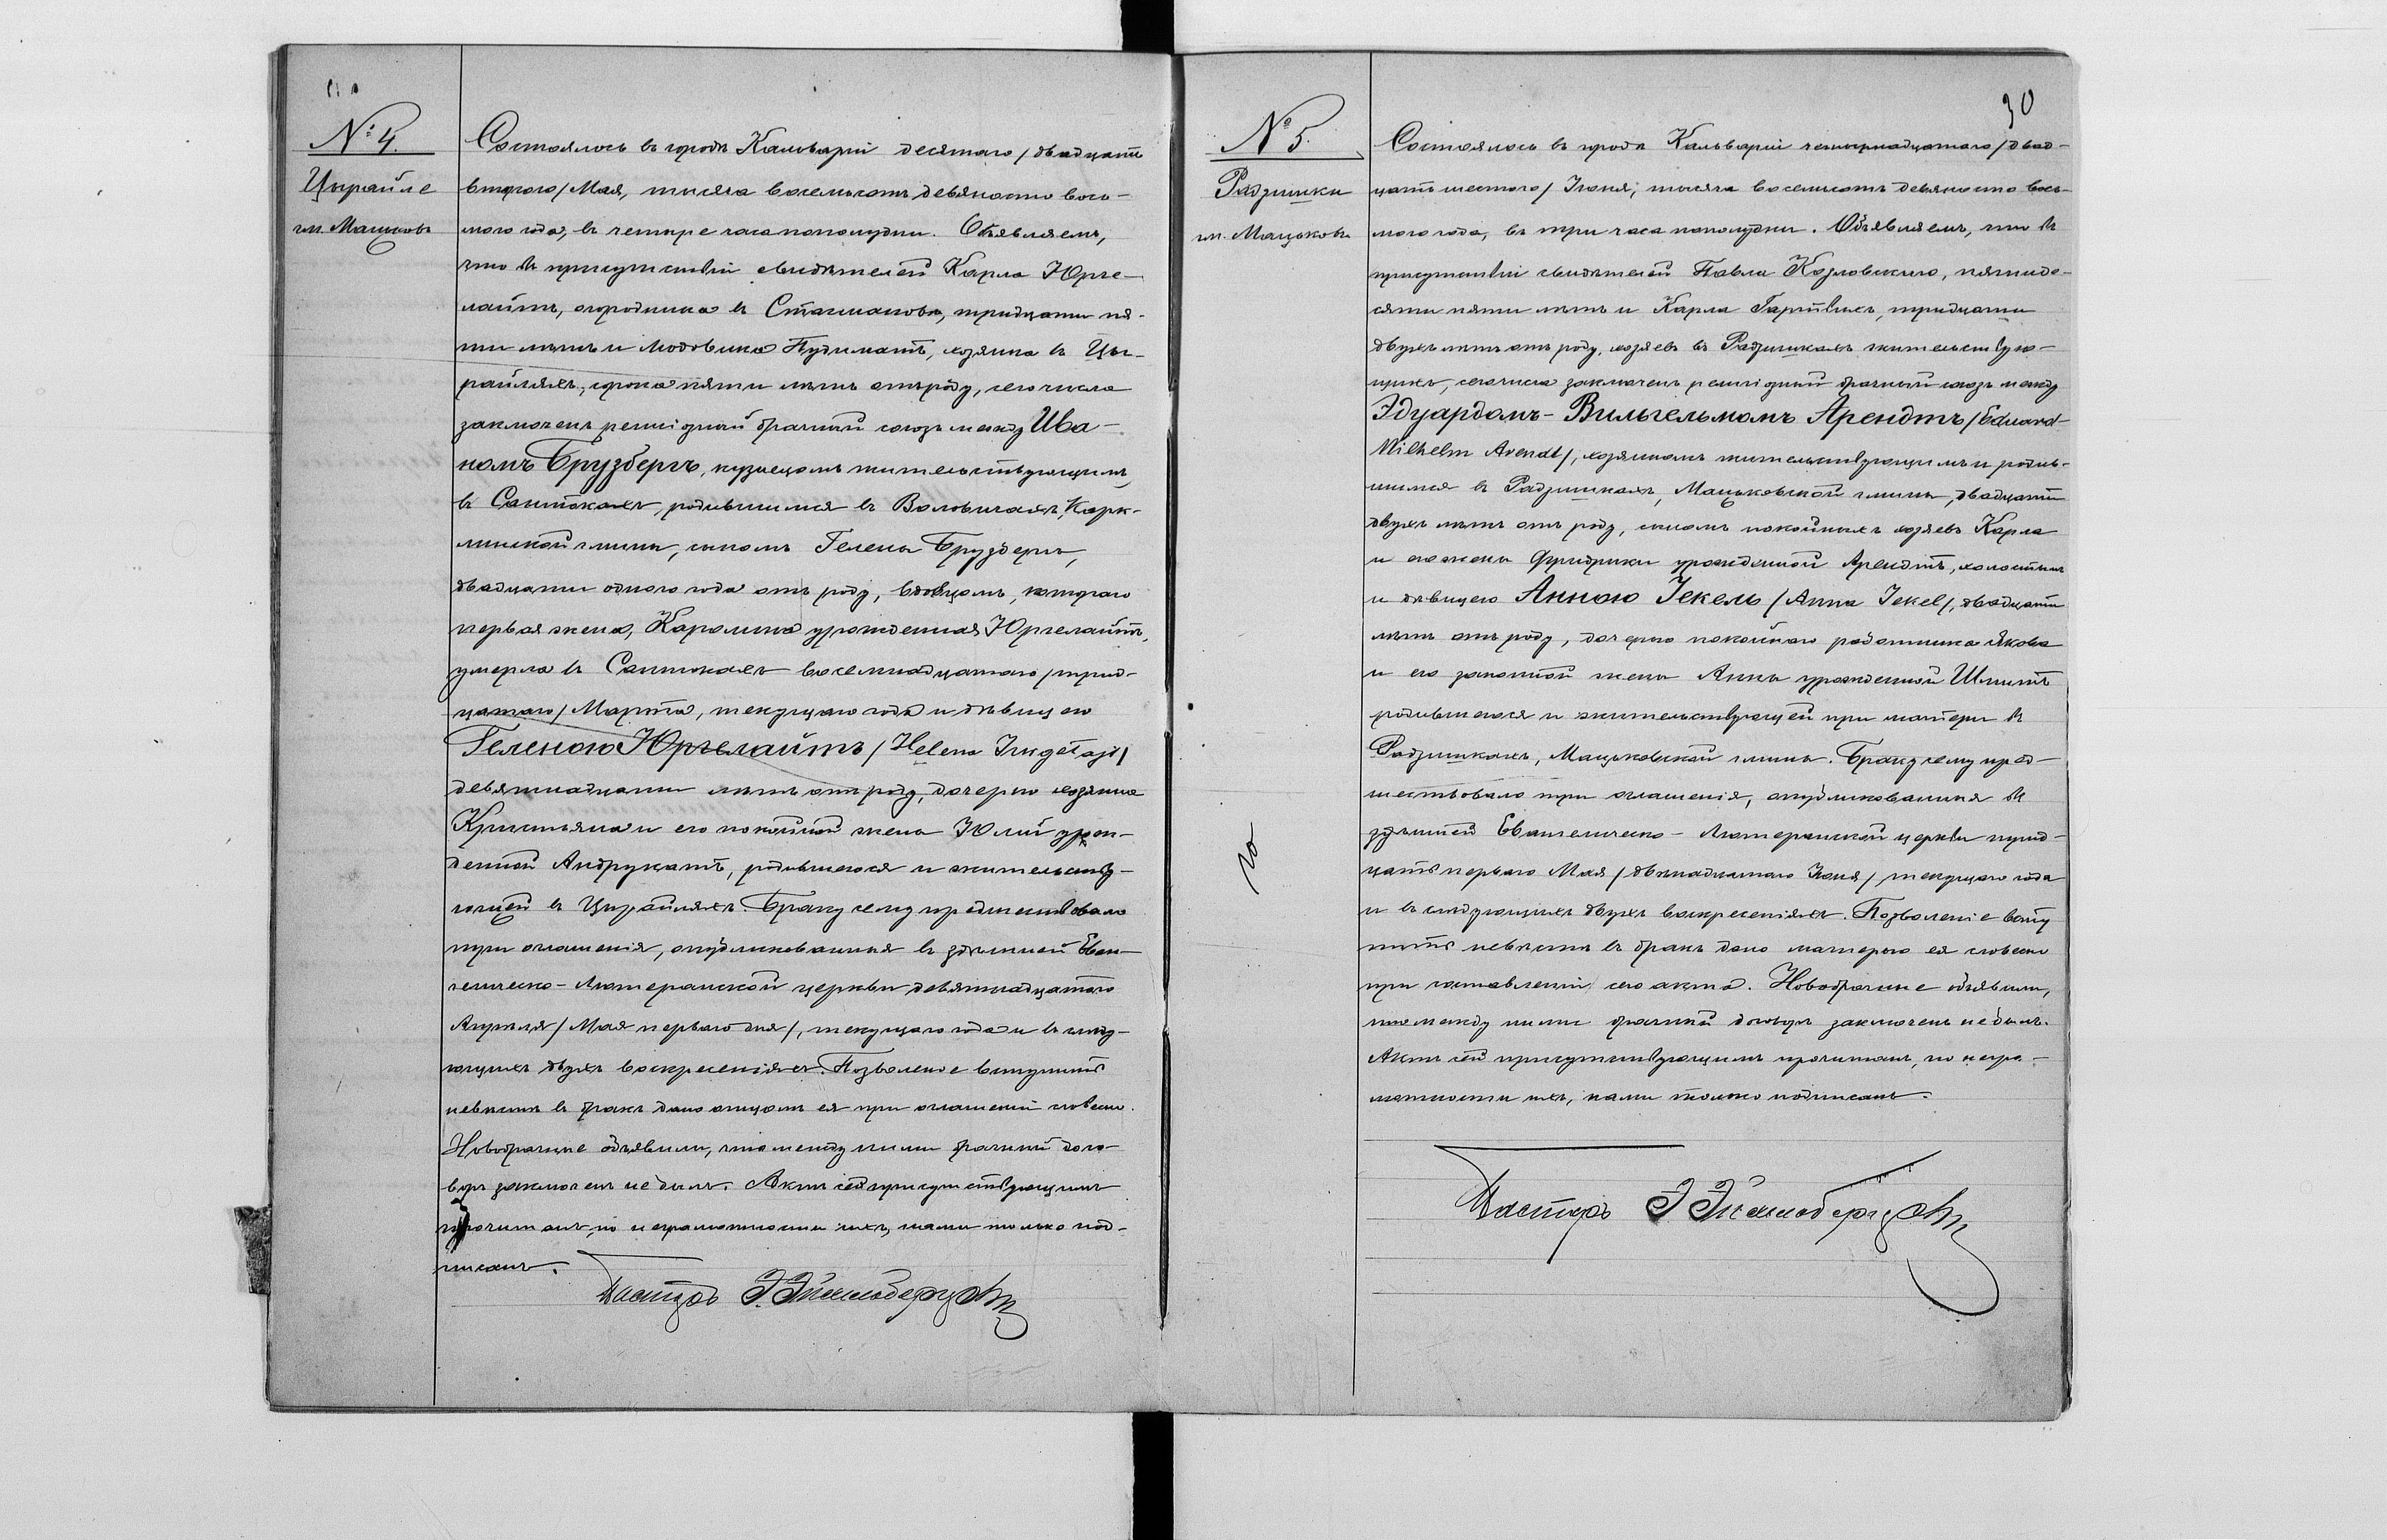 № 4.
Цирайле
гм. Мацковъ
Состоялось въ городѣ Кальваріи десятаго /двадцать
второго/ Мая, тысяча восемьсотъ девяносто вось-
мого года, въ четыре часа пополудни. Объявляемъ,
что въ присутствіи свидѣтелей Карла Юрге-
лайтъ, огородника въ Сташкановѣ, тридцати пя-
ти лѣтъ и Людовика Пудимать, хозяина въ Ци-
райляхъ, сорока пяти лѣтъ отъ роду, сего числа
заключенъ религіозный брачный союзъ между Ива-
номъ Брузбергъ, кузнецомъ жительствующимъ
въ Сантокахъ, родившимся въ Воловичахъ, Карк-
линской гмины, сыномъ Гелены Брузбергъ,
двадцати одного года отъ роду, вдовцомъ, котораго
первая жена, Каролина урожденная Юргелайтъ,
умерла въ Сантокахъ восемнадцатаго /трид-
цатаго/ Марта, текущаго года и дѣвицею
Геленою Юргелайтъ /Helena Jurgelajt/
девятнадцати лѣтъ отъ роду, дочерью хозяина
Кристьяна и его покойной жены Юліи урож-
денной Андрукать, родившеюся и жительству-
ющей въ Цирайляхъ. Браку сему предшествовало
три оглашенія, опубликованныя въ здѣшней Еван-
гелическо-Лютеранской церкви девятнадцатаго
Апрѣля /Мая перваго дня/, текущаго года и въ слѣду-
ющихъ двухъ воскресеніяхъ. Позволеніе вступить
невѣстѣ въ бракъ дано отцомъ ея при оглашеніи словесно.
Новобрачные объявили, что между ними брачный дого-
воръ заключенъ не былъ. Актъ сей присутствующимъ
прочитанъ, по неграмотности ихъ, нами только под-
писанъ.
Пасторъ
30
№ 5.
Радзишки
гм. Мацьковъ
Состоялось въ городѣ Кальваріи четырнадцатаго /двад-
цать шестого/ Іюня, тысяча восемьсотъ девяносто вось-
мого года, въ три часа пополудни. Объявляемъ, что въ
присутствіи свидѣтелей Павла Козловскаго, пятиде-
сяти пяти лѣтъ и Карла Гартвихъ, тридцати
двухъ лѣтъ отъ роду, хозяевъ въ Радзишкахъ жительствую-
щихъ, сего числа заключенъ религіозный брачный союзъ между
Эдуардомъ-Вильгельмомъ Арендтъ /Eduard-
Wilhelm Arendt/, хозяиномъ жительствующимъ и родив-
шимся въ Радзишкахъ, Мацьковской гмины, двадцати
двухъ лѣтъ отъ роду, сыномъ покойныхъ хозяевъ Карла
и его жены Фридрики урожденной Арендтъ, холостымъ
и дѣвицею Анною Іекель /Anna Jekel/, двадцати
лѣтъ отъ роду, дочерью покойнаго работника Якова
и его законной жены Анны урожденной Шмитъ
родившеюся и жительствующей при матери въ
Радзишкахъ, Мацьковской гмины. Браку сему пред-
шествовало три оглашенія, опубликованныя въ
здѣшней Евангелическо-Лютеранской церкви трид-
цать перваго Мая /двѣнадцатаго Іюня/, текущаго года
и въ слѣдующихъ двухъ воскресеніяхъ. Позволеніе всту
пить невѣстѣ въ бракъ дано матерью ея словесно
при составленіи сего акта. Новобрачные объявили,
что между ними брачный договоръ заключенъ не былъ.
Актъ сей присутствующимъ прочитанъ, по негра-
мотности ихъ, нами только подписанъ.
Пасторъ